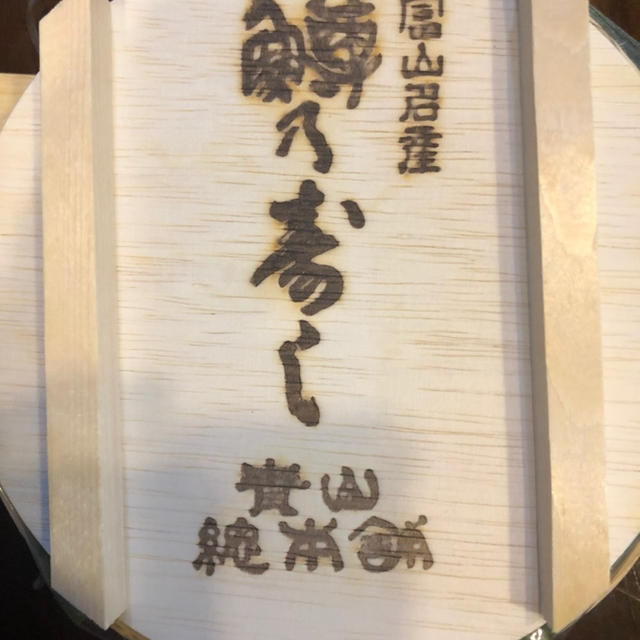 富山名産
鱒乃寿し
青山
総本舗